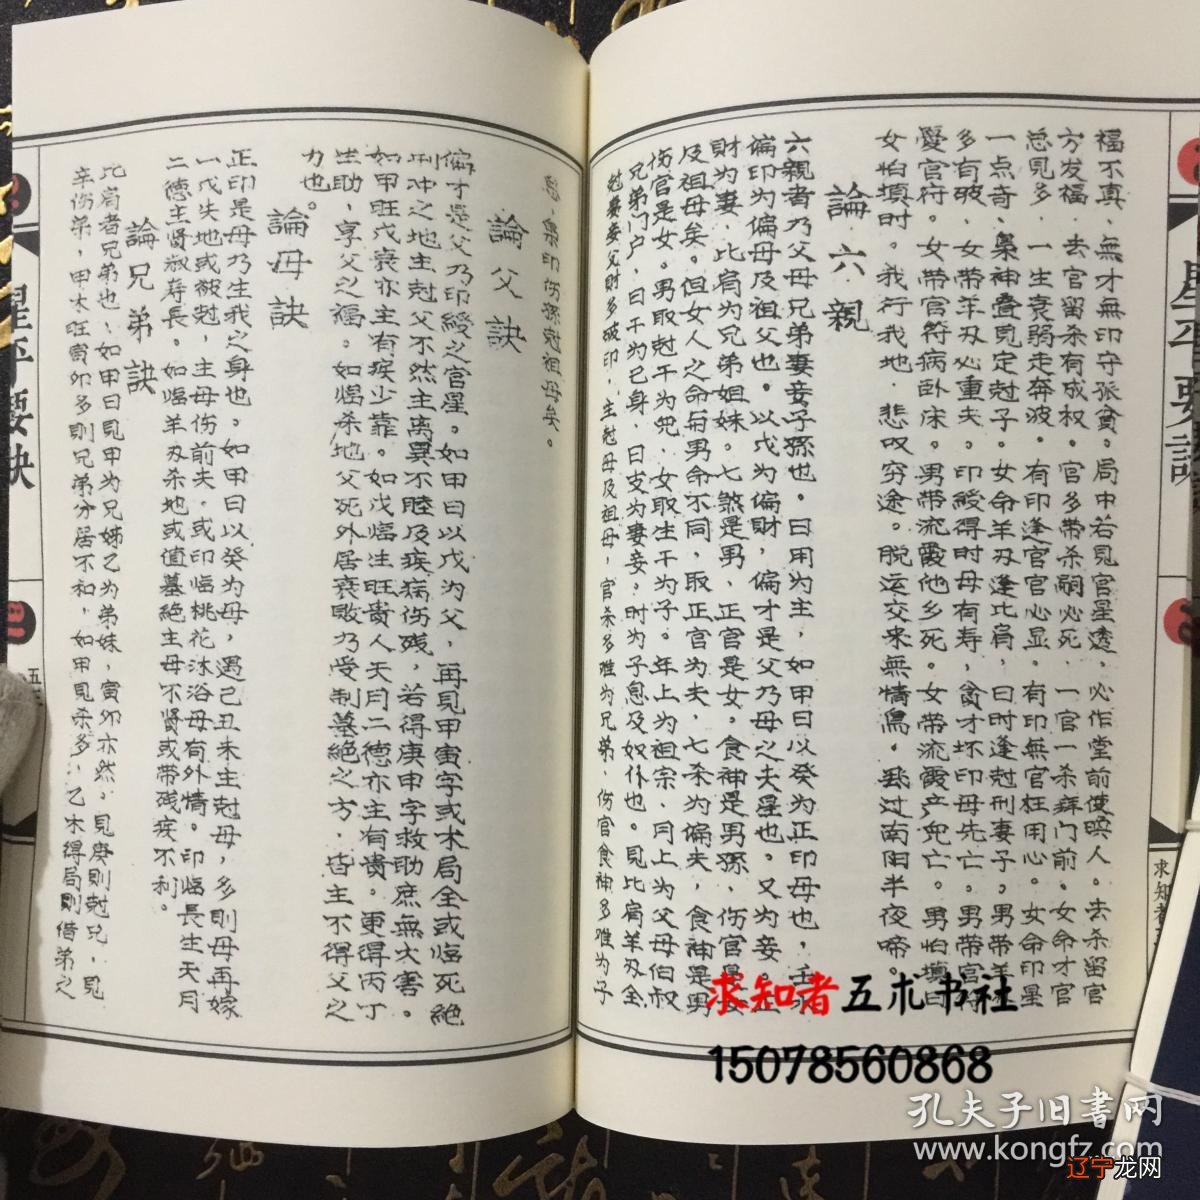 福不真，無才無印守孤貧。局中若見官星透，必作堂前使喚人。去杀留官
方发福，去官留杀有成权。官多带杀嗣必死，一官一杀病门前。女命才官
总見多，一生衰弱走奔波。有印逢官官必显。有印無官枉用心。女命印星
一点奇，梟神叠見定尅子。女命羊刃逢比肩，日时逢尅刑妻子。男带羊
多有破，女带羊刃必重夫。印綬得时母有寿，貪才坏印母先亡。男带官符
愛官符。女带官符病卧床。男带流霞他乡死。女带流霞产死亡。男怕填日
女怕填时。我行我地，悲叹穷途。脱运交来無情焉。過南阳半夜啼。
論六親
六親者乃父母兄弟妻妾子孫也。日用为主，如甲日以癸为正印母也，壬
偏印为偏母及祖父也。以戊为偏財，偏才是父乃母之夫星也。又为妾。正
財为妻，比肩为兄弟姐妹。七煞是男，正官是女。食神是男孫，伤官是女
及祖母矣。但女人之命与男命不同，取正官为夫，七杀为偏夫，食神是男
伤官是女。男取尅干为兒，女取生干为子。年上为祖宗，月上为父母伯叔
兄弟门户，日干为己身，日支为妻妾。时为子息及奴仆也。見比肩羊刃全
尅妻妾父財多破印，主尅母及祖母，官杀多难为兄弟，伤官食神多难为子
息，梟印伤孫尅祖母矣。
論父訣
偏才是父乃印綬之官星。如甲日以戊为父，再見甲寅字或木局全或临死絕
刑冲之地主尅父不然主离異不睦及疾病伤残，若得庚申字救助庶無大害。
如甲旺戊衰亦主有疾少靠。如戊临生旺贵人天月二德亦主有贵。更得丙丁
生助，享父之福。如临杀地父死外居衰敗乃受制墓絕之方，皆主不得父之
力也。
論母訣
正印是母乃生我之身也。如甲日以癸为母，遇己丑未主尅母，多則母再嫁
一戊失地或被尅，主母伤前夫，或印临桃花沐浴母有外情。印临長生天月
二德主贤淑寿長。如临羊刃杀地或值墓絕主母不贤或带残疾不利。
論兄弟訣
比肩者兄弟也，如甲日見甲为兄姊乙为弟妹，寅卯亦然。見庚則尅兄，見
辛伤弟，甲木旺寅卯多則兄弟分居不和，如甲見杀多，乙木得局則借弟之
星平要訣
求知者
求知者五术书社
15078560868
孔夫子旧書网
www.kongfz.com
辽宁龙网